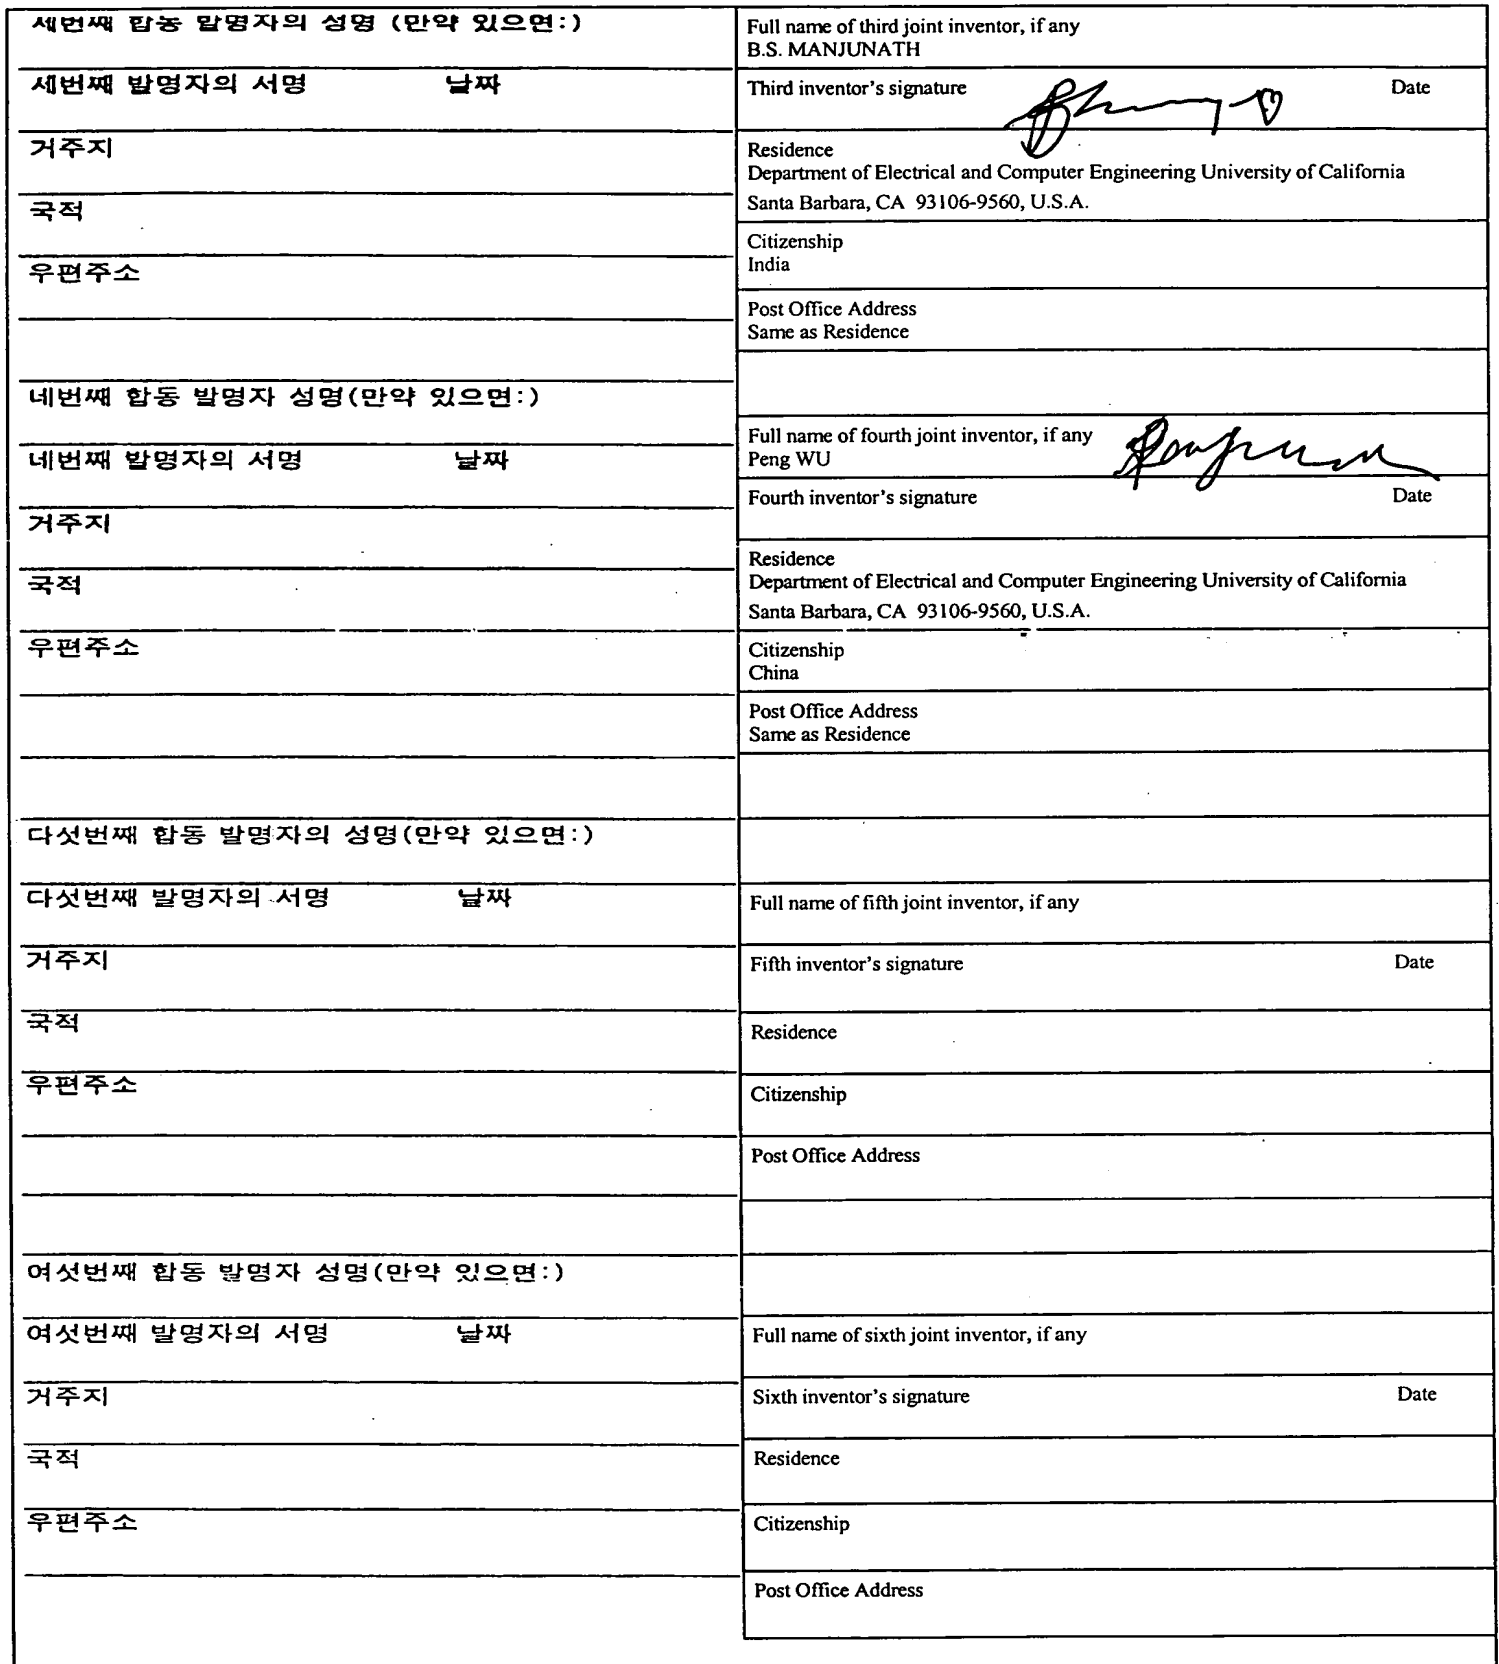 세번째 합동 발명자의 성명 (만약 있으면:)
세번째 발명자의 서명 날짜
거주지
국적
우편주소
네번째 합동 발명자 성명(만약 있으면:)
네번째 발명자의 서명 날짜
거주지
국적
우편주소
다섯번째 합동 발명자의 성명(만약 있으면:)
다섯번째 발명자의 서명 날짜
거주지
국적
우편주소
여섯번째 합동 발명자 성명(만약 있으면:)
여섯번째 발명자의 서명 날짜
거주지
국적
우편주소
Full name of third joint inventor, if any
B.S. MANJUNATH
Third inventor's signature Date
Residence
Department of Electrical and Computer Engineering University of California
Santa Barbara, CA 93106-9560, U.S.A.
Citizenship
India
Post Office Address
Same as Residence
Full name of fourth joint inventor, if any
Peng WU
Fourth inventor's signature Date
Residence
Department of Electrical and Computer Engineering University of California
Santa Barbara, CA 93106-9560, U.S.A.
Citizenship
China
Post Office Address
Same as Residence
Full name of fifth joint inventor, if any
Fifth inventor's signature Date
Residence
Citizenship
Post Office Address
Full name of sixth joint inventor, if any
Sixth inventor's signature Date
Residence
Citizenship
Post Office Address